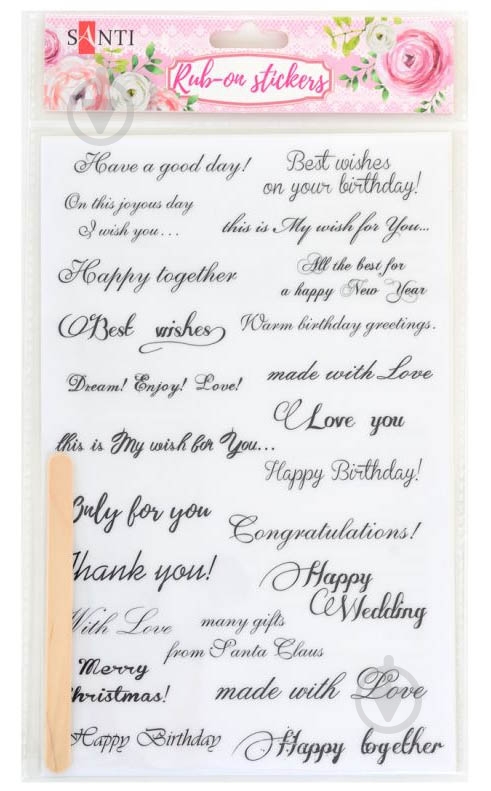 SANTI
Rub-on stickers
Have a good day!
Best wishes
on your birthday!
On this joyous day
I wish you...
this is My wish for You...
Happy together
All the best for
a happy New Year
Best wishes
Warm birthday greetings.
Dream! Enjoy! Love!
made with Love
I Love you
this is My wish for You...
Happy Birthday!
Only for you
Congratulations!
Thank you!
Happy
Wedding
With Love
many gifts
from Santa Claus
Merry
Christmas!
made with Love
Happy Birthday
Happy together